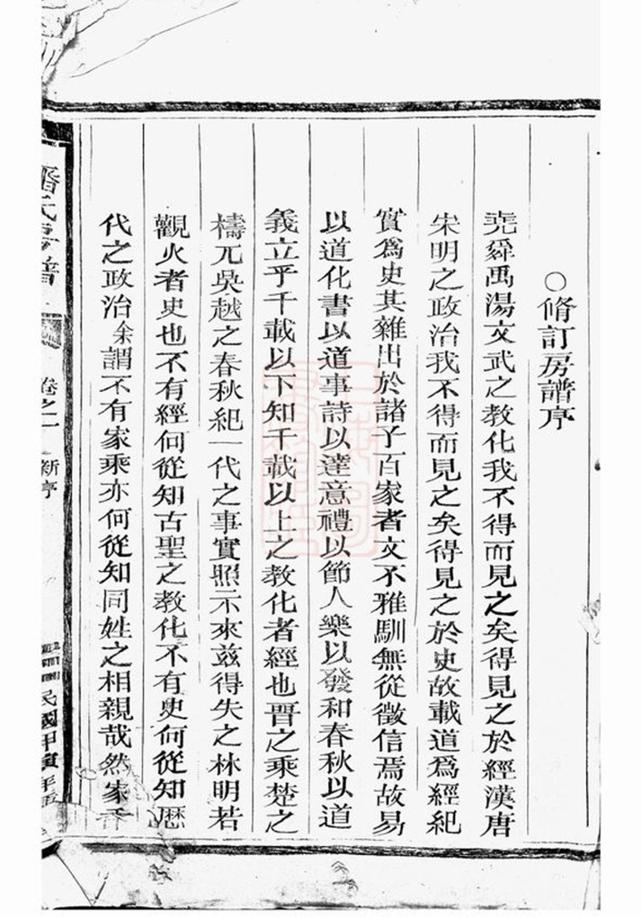 ○脩訂房譜序
堯舜禹湯文武之教化我不得而見之矣得見之於經漢唐
宋明之政治我不得而見之矣得見之於史故載道爲經紀
實爲史其雜出於諸子百家者文不雅馴無從徵信焉故易
以道化書以道事詩以達意禮以節人樂以發和春秋以道
義立乎千載以下知千載以上之教化者經也晋之乘楚之
檮兀吳越之春秋紀一代之事實照示來兹得失之林明若
觀火者史也不有經何從知古聖之教化不有史何從知歷
代之政治余謂不有家乘亦何從知同姓之相親哉然家
潘氏房譜
卷之一 新序
民國甲寅年